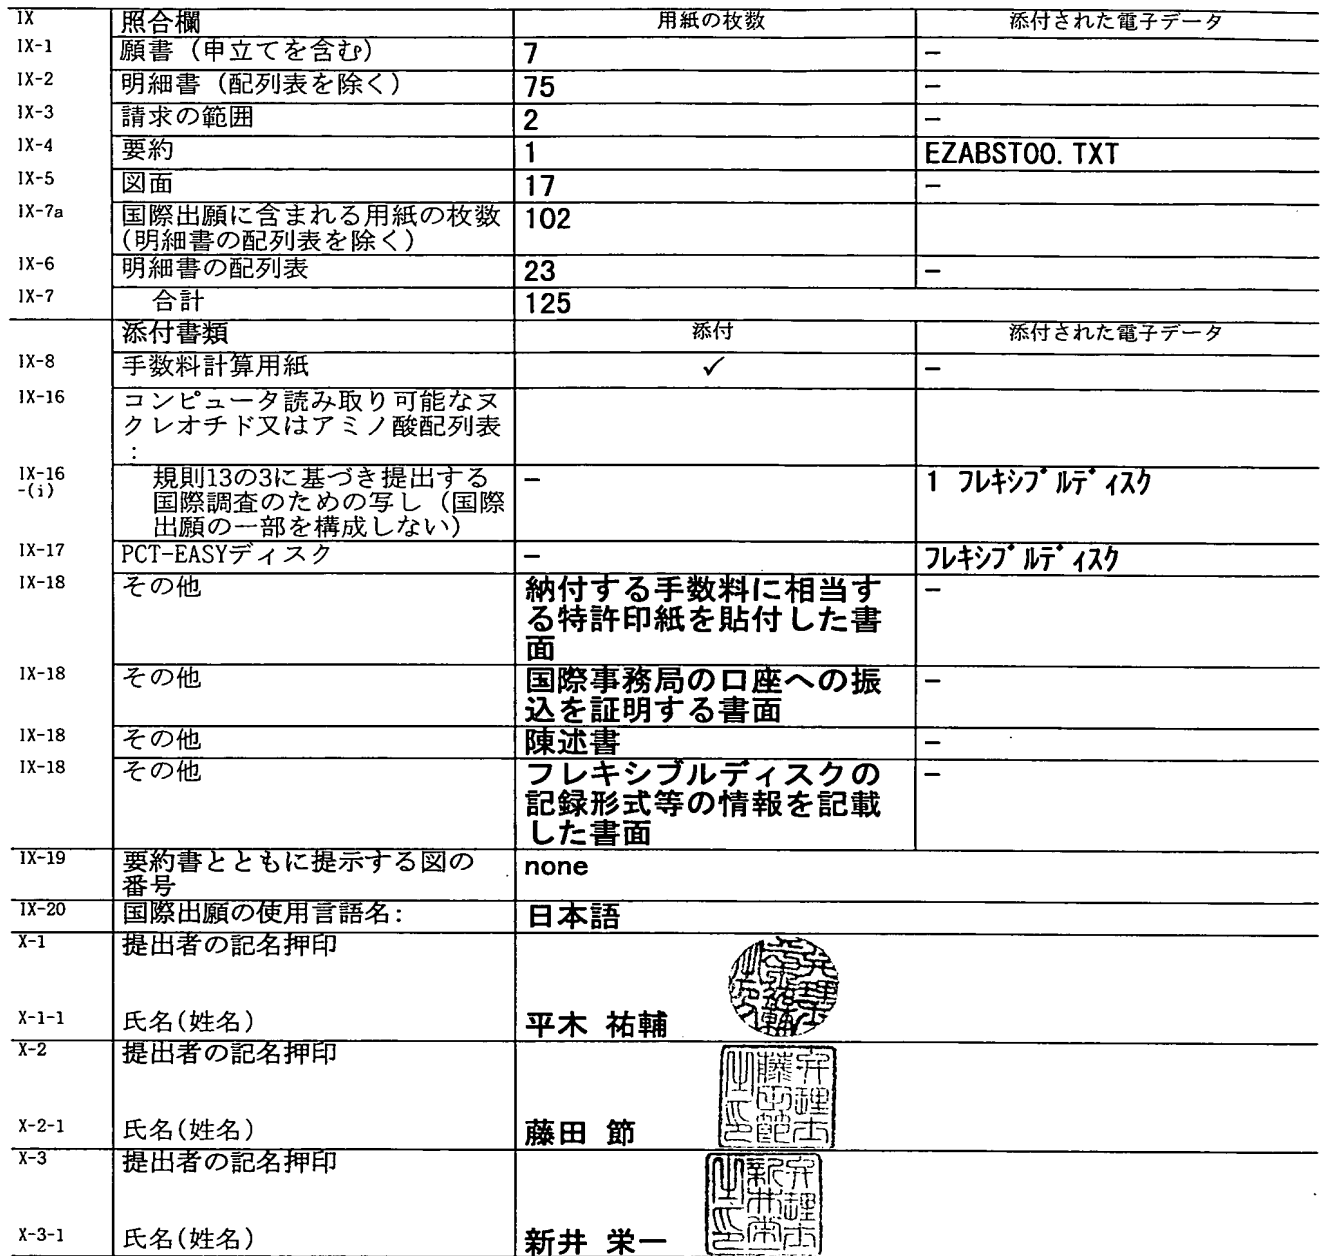 IX 照合欄 用紙の枚数 添付された電子データ
IX-1 願書 (申立てを含む) 7 –
IX-2 明細書 (配列表を除く) 75 –
IX-3 請求の範囲 2 –
IX-4 要約 1 EZABST00.TXT
IX-5 図面 17 –
IX-7a 国際出願に含まれる用紙の枚数 102
(明細書の配列表を除く)
IX-6 明細書の配列表 23 –
IX-7 合計 125
添付書類 添付 添付された電子データ
IX-8 手数料計算用紙 ✓ –
IX-16 コンピュータ読み取り可能なヌ
クレオチド又はアミノ酸配列表
:
IX-16 規則13の3に基づき提出する – 1 フレキシブルディスク
-(i) 国際調査のための写し (国際
出願の一部を構成しない)
IX-17 PCT-EASYディスク – フレキシブルディスク
IX-18 その他 納付する手数料に相当す –
る特許印紙を貼付した書
面
IX-18 その他 国際事務局の口座への振 –
込を証明する書面
IX-18 その他 陳述書 –
IX-18 その他 フレキシブルディスクの –
記録形式等の情報を記載
した書面
IX-19 要約書とともに提示する図の none
番号
IX-20 国際出願の使用言語名: 日本語
X-1 提出者の記名押印
X-1-1 氏名(姓名) 平木 祐輔
X-2 提出者の記名押印
X-2-1 氏名(姓名) 藤田 節
X-3 提出者の記名押印
X-3-1 氏名(姓名) 新井 栄一